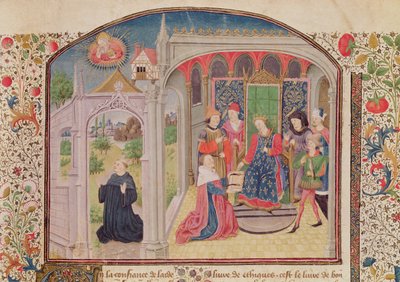 En la confiance de laide
liure de ethiques. cest le liure de bon